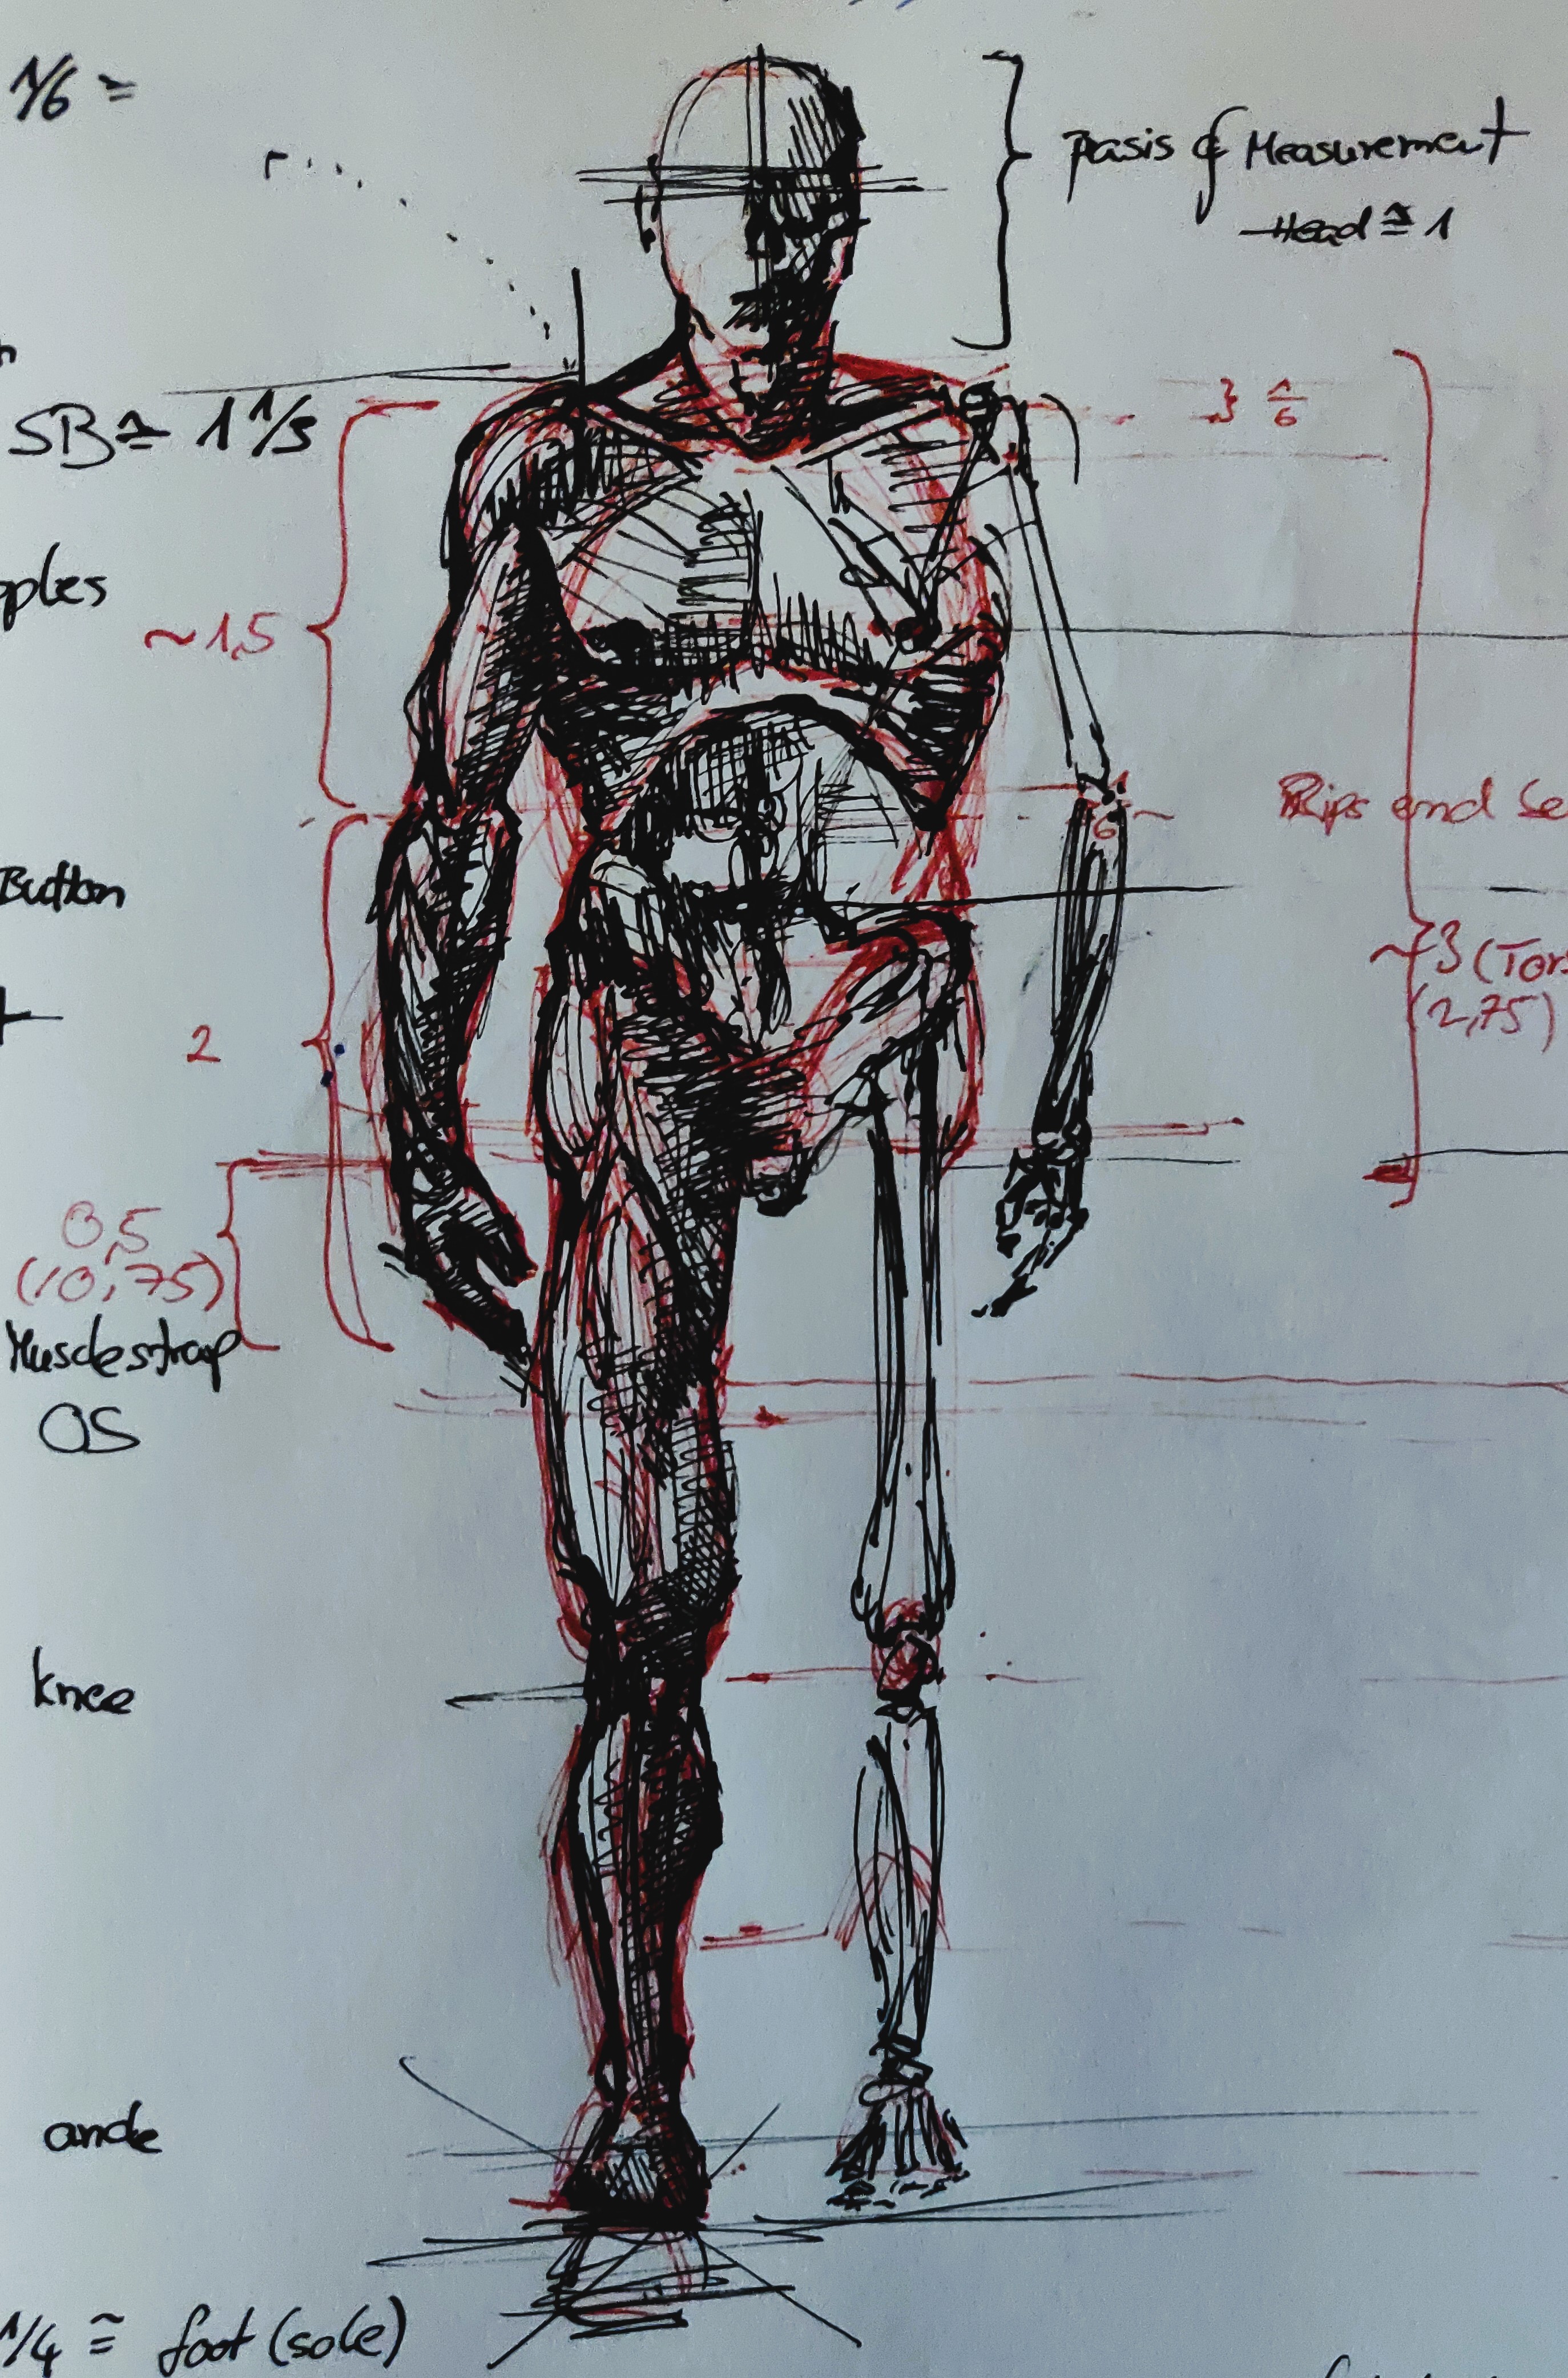 1/6 =
Basis of Measurement
Head ≅ 1
SB ≅ 1 1/3
} 1/6
pples
~1,5
1/6
Rips and Se
Button
~3 (Tors
(2,75)
2
0,5
(0,75)
Musclestrap
OS
knee
ancle
1/4 ≅ foot (sole)